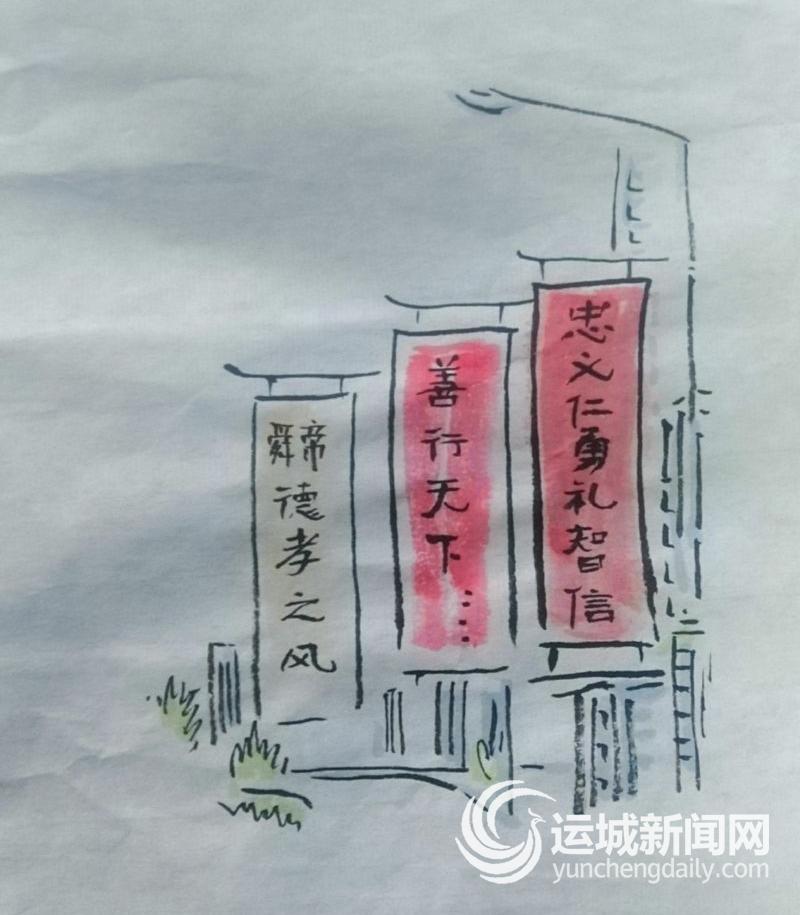 忠义仁勇礼智信
善行天下……
舜帝德孝之风
运城新闻网
yunchengdaily.com